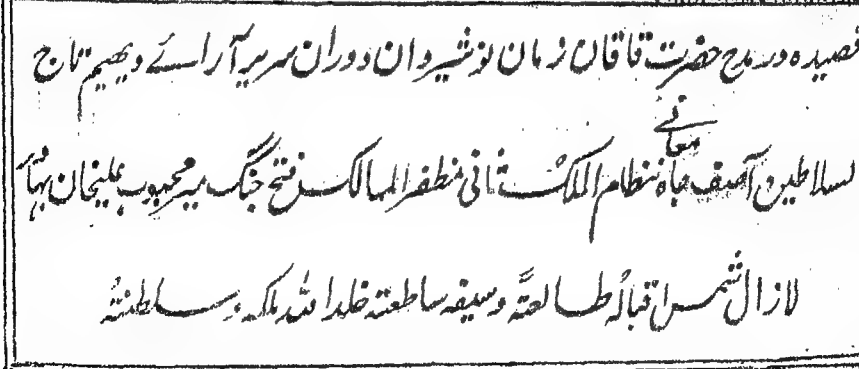 قصیده در مدح حضرت قاقان زمان نوشیروان دوران سریر آرائے دیهیم تاج
لسلاطین و آصف جاه معانے نظام الملک ثانی مظفر الممالک فتح جنگ میر محبوب علیخان بهادر
لازال شمس اقباله طالعتة وسیفه ساطعته خلد الله ملکه و سلطنته